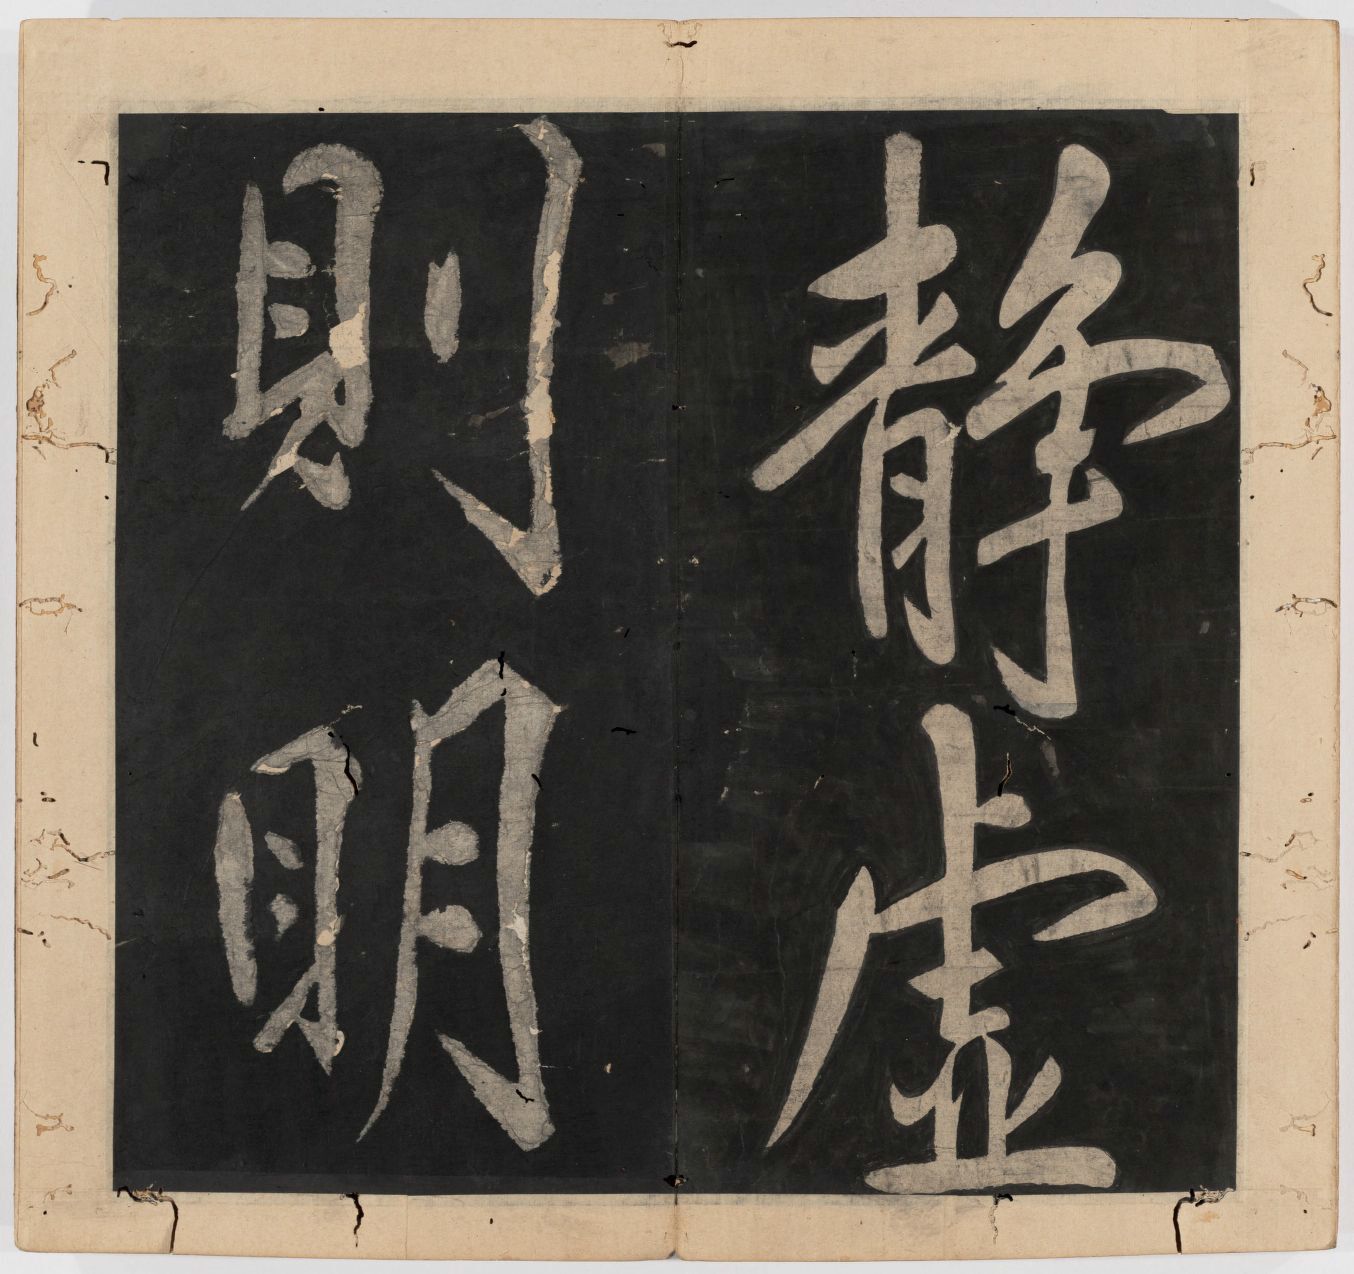 靜虛
則明